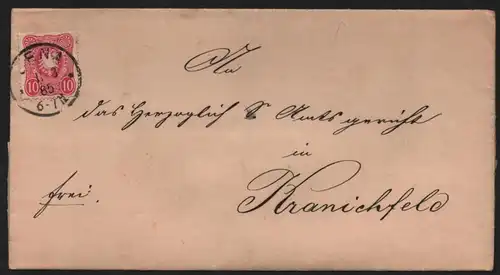 JENA
85
6-7N
10 10
An
das Herzoglich S Amtsgericht
in
Kranichfeld
frei.